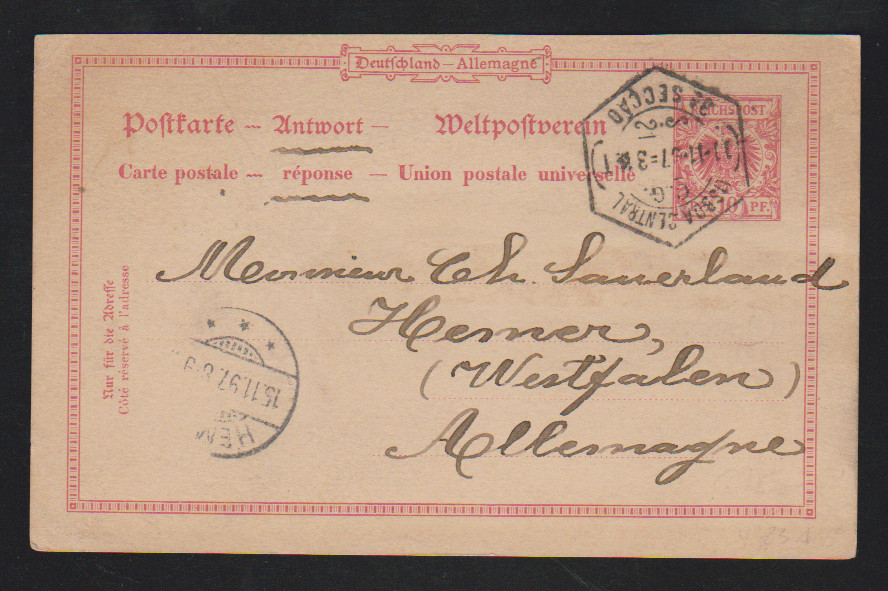 Deutschland – Allemagne
Postkarte – Antwort – Weltpostverein
Carte postale – réponse – Union postale universelle
REICHSPOST
10 PF.
SECÇÃO
CENTRAL
Nur für die Adresse
Côté réservé à l'adresse
Monsieur Ch. Sauerland
Hemer,
(Westfalen)
Allemagne
15.11.97. 8-9
HEM